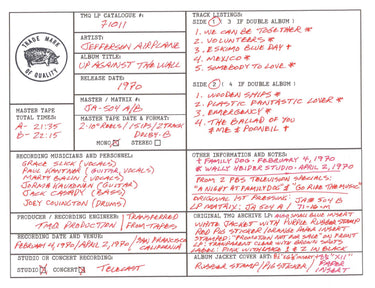 TRADE MARK
OF QUALITY
TMQ LP CATALOGUE #:
71011
ARTIST:
JEFFERSON AIRPLANE
ALBUM TITLE:
UP AGAINST THE WALL
RELEASE DATE:
1970
MASTER / MATRIX #:
JA-504 A/B
MASTER TAPE
TOTAL TIMES:
A- 21:35
B- 22:15
MASTER TAPE DATE & FORMAT:
2-10" REELS / 15 IPS / 2 TRACK
DOLBY B
MONO STEREO
TRACK LISTINGS:
SIDE 1 3 IF DOUBLE ALBUM:
1. WE CAN BE TOGETHER *
2. VOLUNTEERS *
3. ESKIMO BLUE DAY +
4. MEXICO *
5. SOMEBODY TO LOVE *
SIDE 2 4 IF DOUBLE ALBUM:
1. WOODEN SHIPS *
2. PLASTIC FANTASTIC LOVER *
3. EMERGENCY *
4. THE BALLAD OF YOU
& ME & POONEIL +
RECORDING MUSICIANS AND PERSONNEL:
GRACE SLICK (VOCALS)
PAUL KANTNER (GUITAR, VOCALS)
MARTY BALIN (VOCALS)
JORMA KAUKONEN (GUITAR)
JACK CASADY (BASS)
JOEY COVINGTON (DRUMS)
OTHER INFORMATION AND NOTES:
+ FAMILY DOG - FEBRUARY 4, 1970
* WALLY HEIDER STUDIO - APRIL 2, 1970
FROM 2 PBS TELEVISION SPECIALS:
"A NIGHT AT FAMILY DOG" & "GO RIDE THE MUSIC"
ORIGINAL 1ST PRESSING: JAB 504 B
LP MATRIX: JA 504 A /
PRODUCER / RECORDING ENGINEER:
TMQ PRODUCTION
TRANSFERRED
FROM TAPES
RECORDING DATE AND VENUE:
FEBRUARY 4, 1970 / APRIL 2, 1970 / SAN FRANCISCO
CALIFORNIA
STUDIO OR CONCERT RECORDING:
STUDIO CONCERT TELECAST
ORIGINAL TMQ ARCHIVE LP:
WHITE JACKET WITH PURPLE RUBBER STAMP
RED PIG STICKER / ORANGE PAPER INSERT
STAMPED: "PROMOTION NOT FOR SALE" ON FRONT
LP: TRANSPARENT CLEAR WITH BROWN SPOTS
LABEL: PINK WITH SIDE 1 & 2 IN BLACK
ALBUM JACKET COVER ART:
RUBBER STAMP / PIG STICKER / PAPER
INSERT